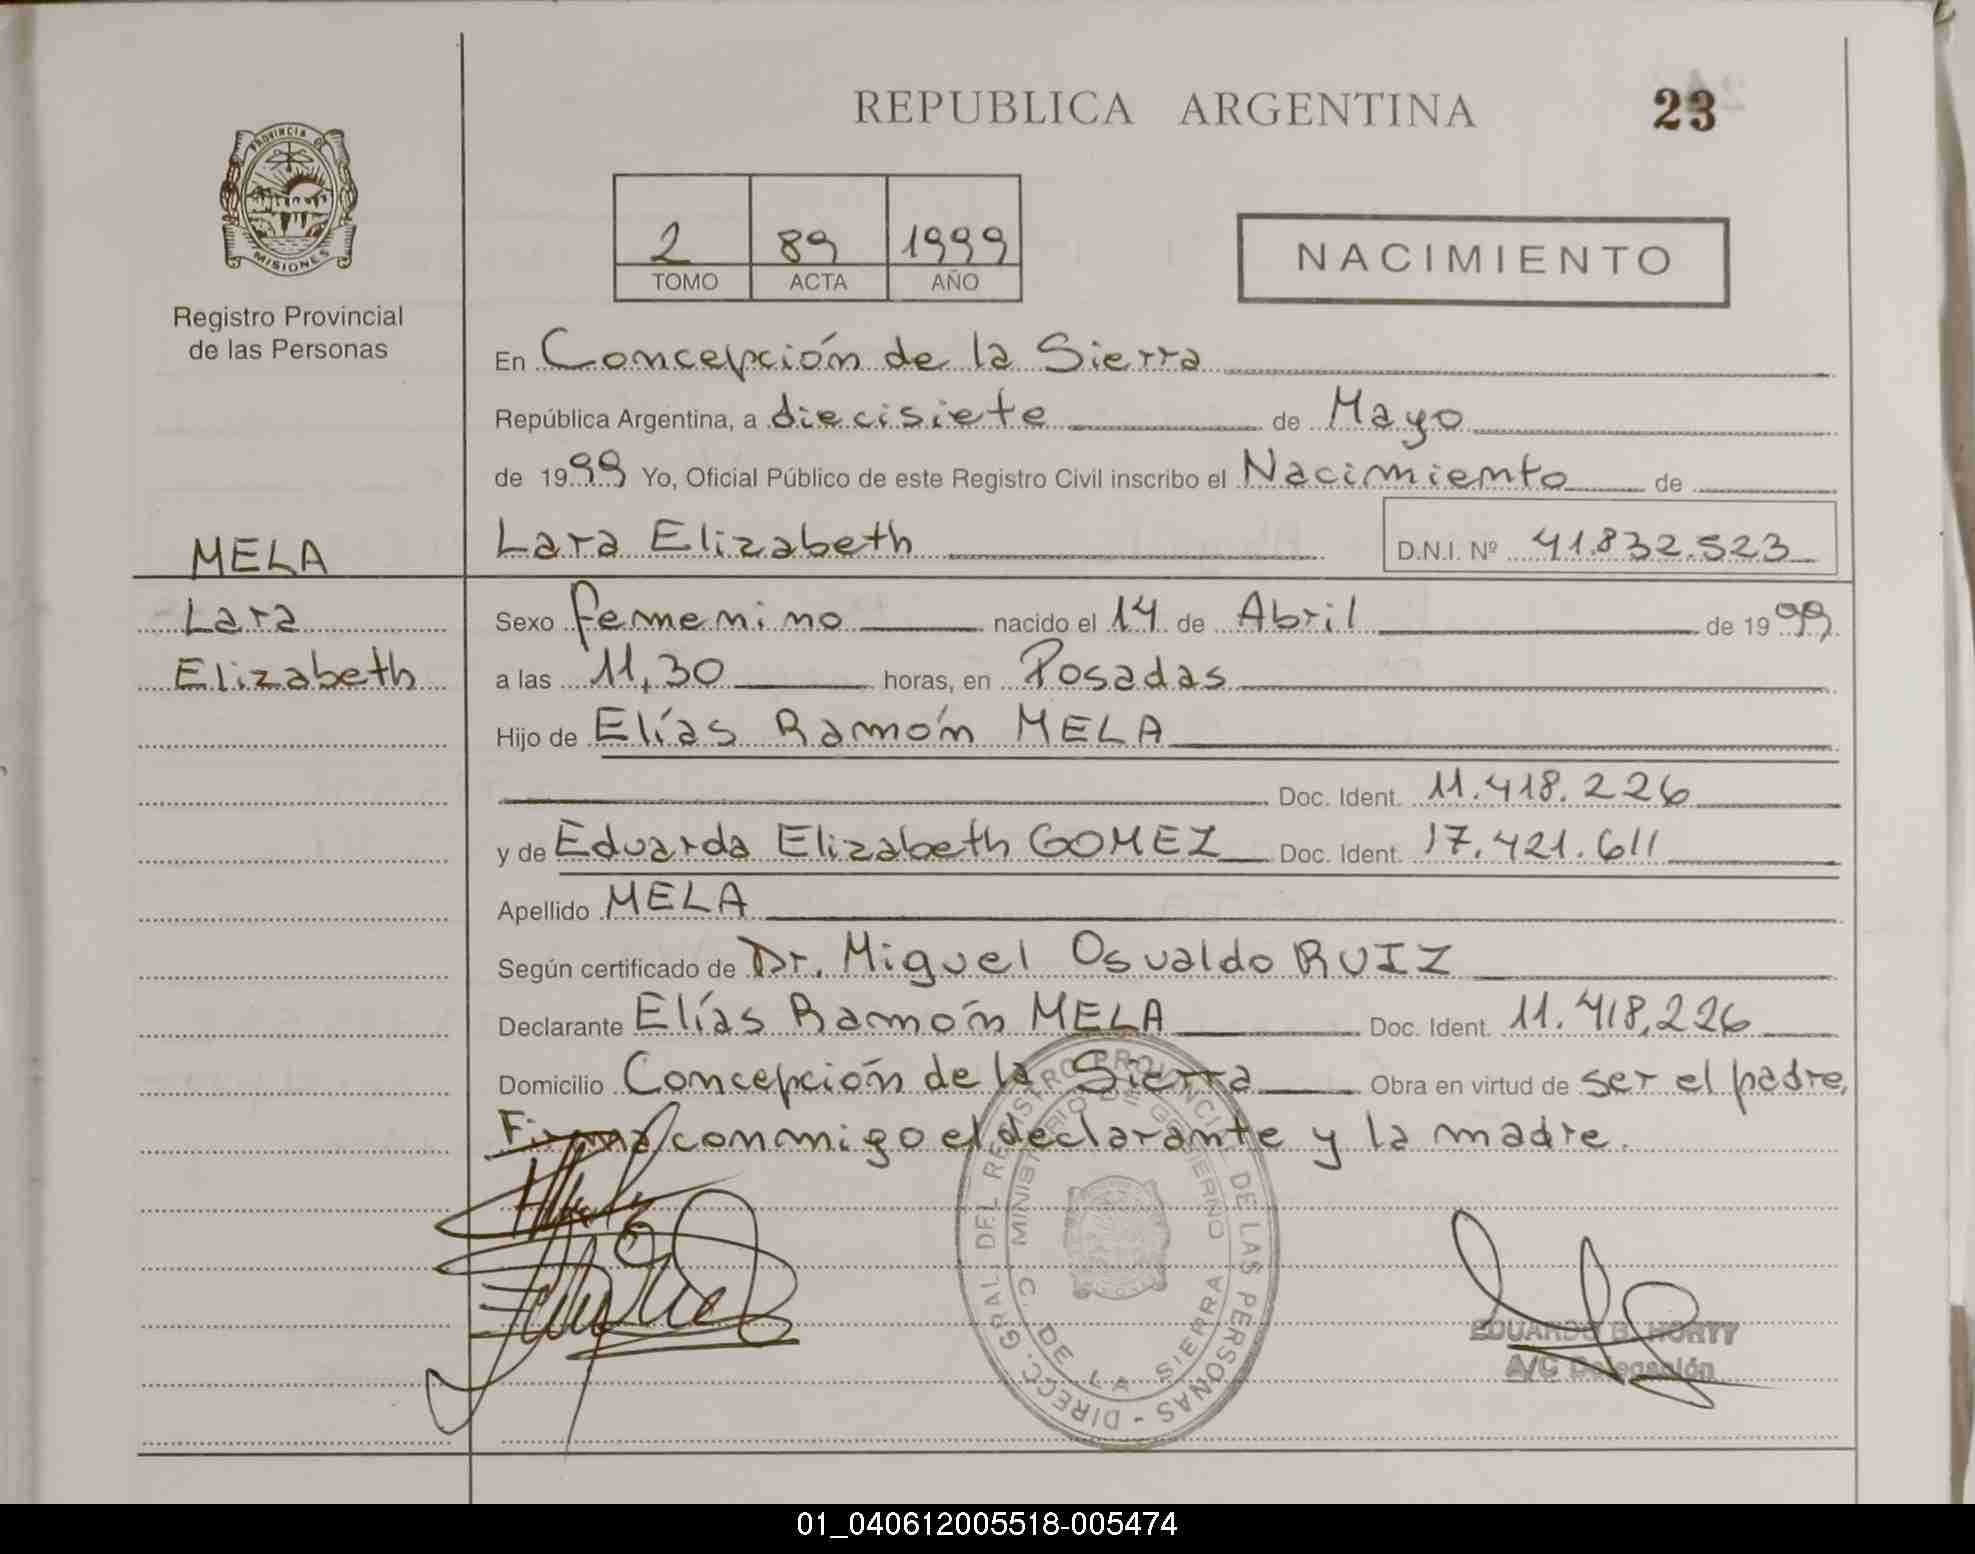 REPUBLICA ARGENTINA
23
PROVINCIA DE
MISIONES
Registro Provincial
de las Personas
2 89 1999
TOMO ACTA AÑO
NACIMIENTO
En Concepción de la Sierra
República Argentina, a diecisiete de Mayo
de 1999 Yo, Oficial Público de este Registro Civil inscribo el Nacimiento de
MELA
Lara Elizabeth D.N.I. Nº 41.832.523
Lara
Elizabeth
Sexo femenino nacido el 14 de Abril de 1999
a las 11,30 horas, en Posadas
Hijo de Elías Ramón MELA
Doc. Ident. 11.418.226
y de Eduarda Elizabeth GOMEZ Doc. Ident. 17.421.611
Apellido MELA
Según certificado de Dr. Miguel Osvaldo RUIZ
Declarante Elías Ramón MELA Doc. Ident. 11.418,226
Domicilio Concepción de la Sierra Obra en virtud de ser el padre,
Firma conmigo el declarante y la madre.
DIRECC. GRAL DEL REGISTRO PROVINCIAL DE LAS PERSONAS -
MINISTERIO DE GOBIERNO
C. DE LA SIERRA
EDUARDO B. HORTY
A/C Delegación
01_040612005518-005474